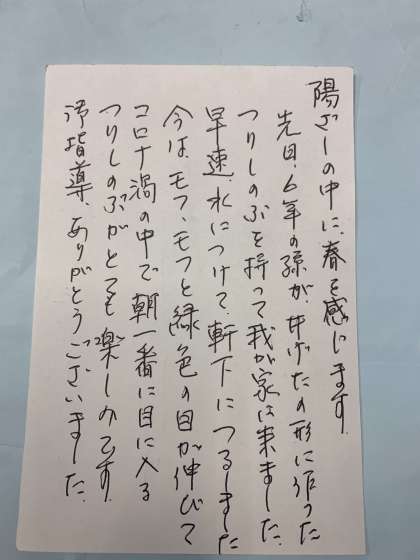 陽ざしの中に、春を感じます。
先日、6年の孫が、井げたの形に作った
つりしのぶを持って我が家に来ました。
早速、水につけて、軒下につるしました
今は、モフ、モフと緑色の目が伸びて
コロナ渦の中で朝一番に目に入る
つりしのぶがとても楽しみです。
御指導、ありがとうございました。